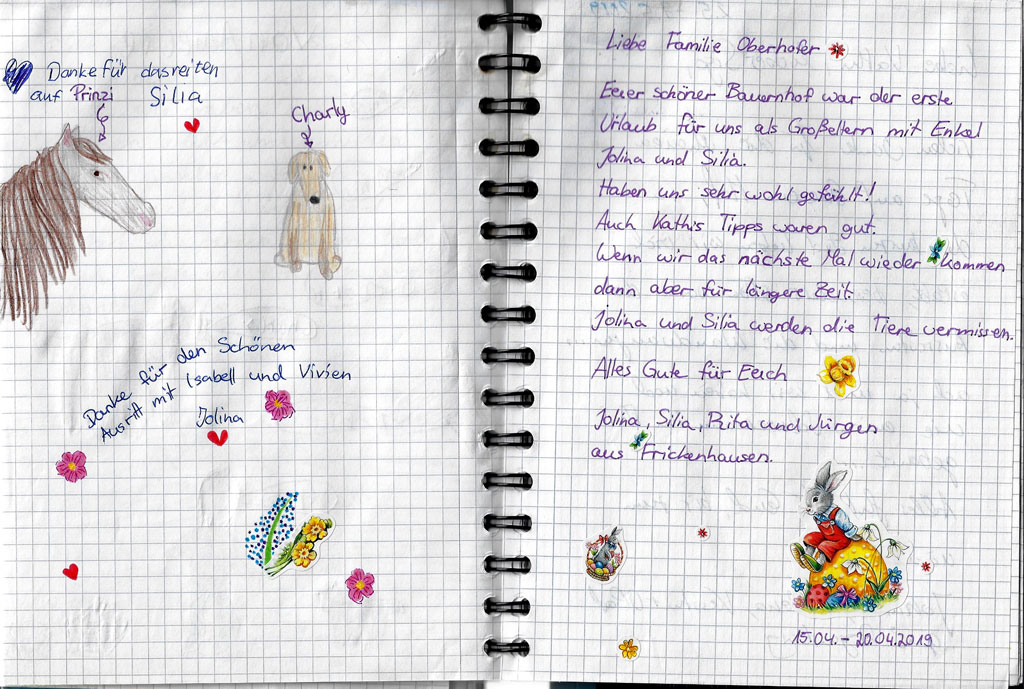 Danke für das reiten
auf Prinzi Silia
Charly
Danke für den Schönen
Ausritt mit Isabell und Vivien
Jolina
Liebe Familie Oberhofer
Euer schöner Bauernhof war der erste
Urlaub für uns als Großeltern mit Enkel
Jolina und Silia.
Haben uns sehr wohl gefühlt!
Auch Kathis Tipps waren gut.
Wenn wir das nächste Mal wieder kommen
dann aber für längere Zeit.
Jolina und Silia werden die Tiere vermissen.
Alles Gute für Euch
Jolina, Silia, Rita und Jürgen
aus Frickenhausen.
15.04. – 20.04.2019